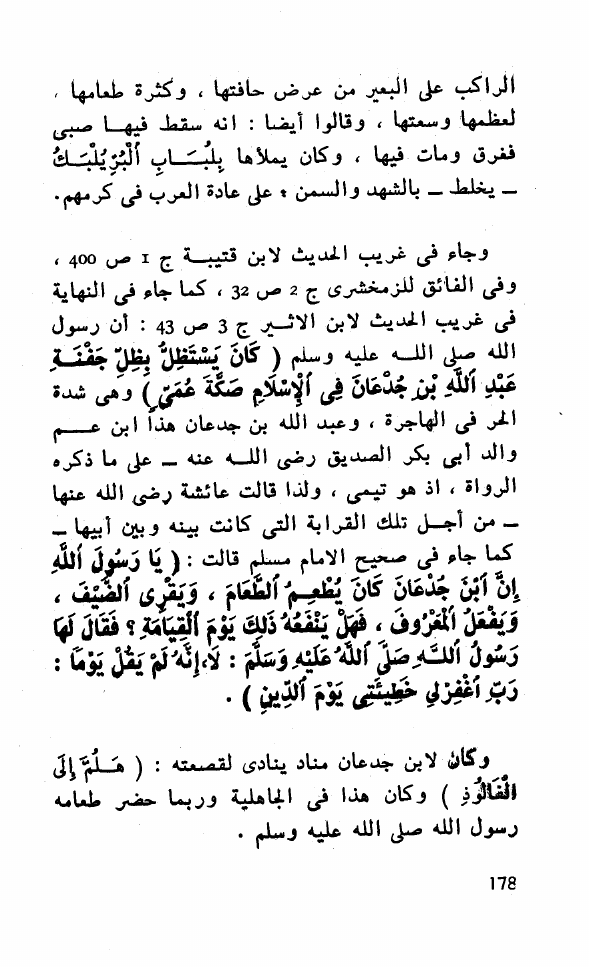 الراكب على البعير من عرض حافتها ، وكثرة طعامها ،
لعظمها وسعتها ، وقالوا أيضا : انه سقط فيها صبى
فغرق ومات فيها ، وكان يملأها بِلُبَابِ ٱلْبُرِّ يُلْبَكُ
ــ يخلط ــ بالشهد والسمن ، على عادة العرب فى كرمهم .
وجاء فى غريب الحديث لابن قتيبة ج 1 ص 400 ،
وفى الفائق للزمخشرى ج 2 ص 32 ، كما جاء فى النهاية
فى غريب الحديث لابن الاثير ج 3 ص 43 : أن رسول
الله صلى الله عليه وسلم ( كَانَ يَسْتَظِلُّ بِظِلِّ جَفْنَةِ
عَبْدِ ٱللَّهِ بْنِ جُدْعَانَ فِى ٱلْإِسْلَامِ صَكَّةَ عُمَيٍّ ) وهى شدة
الحر فى الهاجرة ، وعبد الله بن جدعان هذا ابن عم
والد أبى بكر الصديق رضى الله عنه ــ على ما ذكره
الرواة ، اذ هو تيمى ، ولذا قالت عائشة رضى الله عنها
ــ من أجل تلك القرابة التى كانت بينه وبين أبيها ــ
كما جاء فى صحيح الامام مسلم قالت : ( يَا رَسُولَ ٱللَّهِ
إِنَّ ٱبْنَ جُدْعَانَ كَانَ يُطْعِمُ ٱلطَّعَامَ ، وَيَقْرِى ٱلضَّيْفَ ،
وَيَفْعَلُ ٱلْمَعْرُوفَ ، فَهَلْ يَنْفَعُهُ ذَلِكَ يَوْمَ ٱلْقِيَامَةِ ؟ فَقَالَ لَهَا
رَسُولُ ٱللَّهِ صَلَّى ٱللَّهُ عَلَيْهِ وَسَلَّمَ : لَا، إِنَّهُ لَمْ يَقُلْ يَوْمًا :
رَبِّ ٱغْفِرْ لِى خَطِيئَتِى يَوْمَ ٱلدِّينِ ) .
وكان لابن جدعان مناد ينادى لقصعته : ( هَلُمَّ إِلَى
ٱلْفَالُوذِ ) وكان هذا فى الجاهلية وربما حضر طعامه
رسول الله صلى الله عليه وسلم .
178